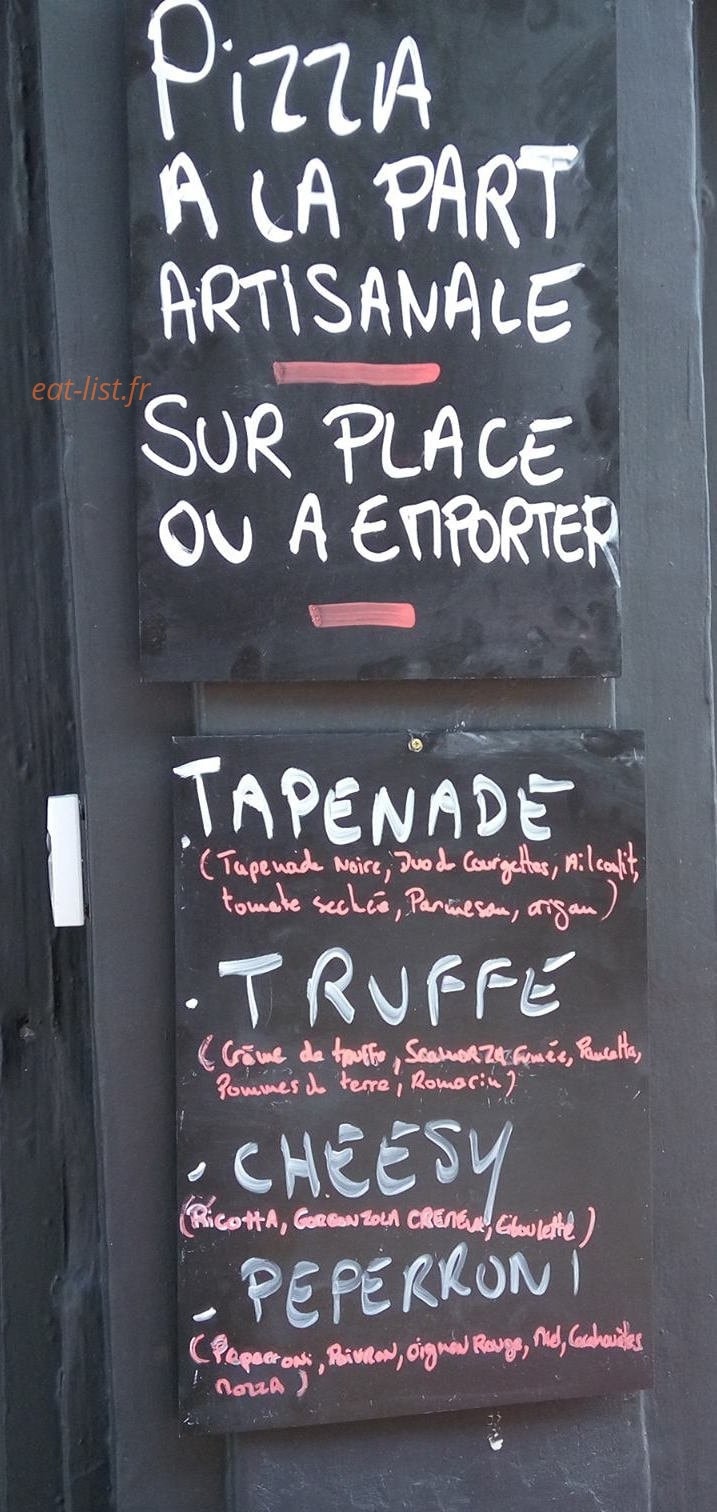 PiZZA
A LA PART
ARTISANALE
eat-list.fr
SUR PLACE
OU A EMPORTER
. TAPENADE
(Tapenade Noire, Duo de Courgettes, Ail confit,
tomate sechée, Parmesan, origan)
. TRUFFE
(Crème de truffe, Scamorza Fumée, Pancetta,
Pommes de terre, Romarin)
. CHEESY
(RicottA, GORGONZOLA CREMEUX, Ciboulette)
. PEPERRONI
(Peperroni, POIVRON, oignon Rouge, Miel, Cacahuètes
MOZZA)